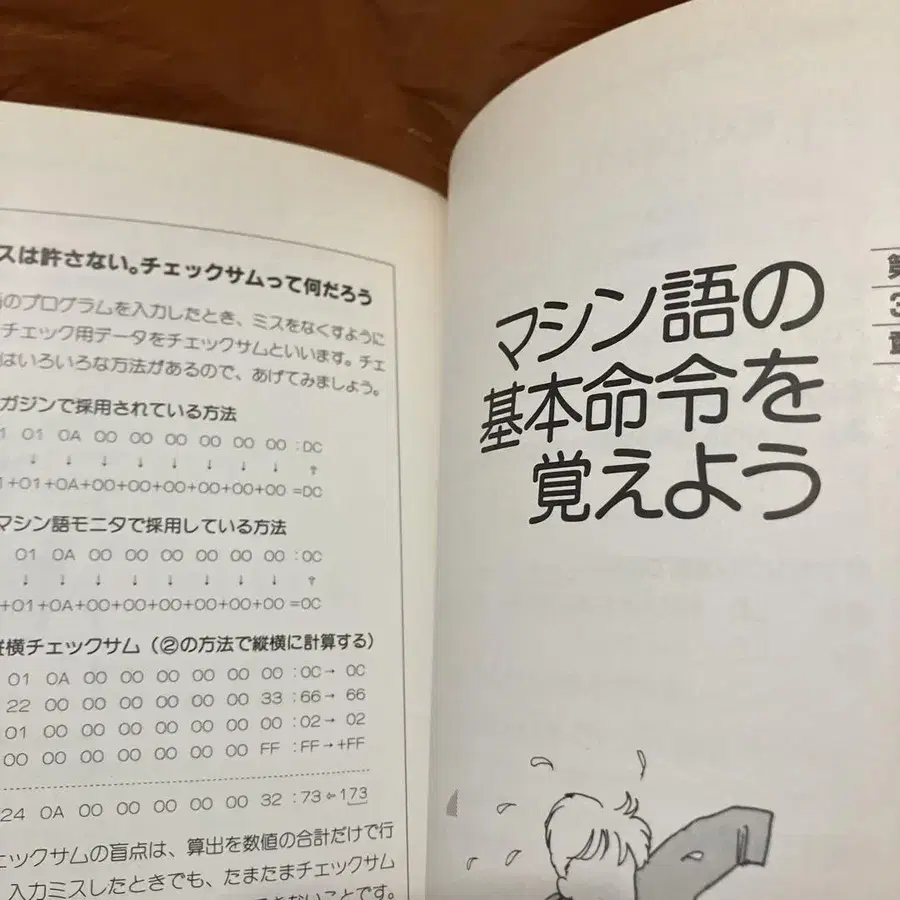 スは許さない。チェックサムって何だろう
のプログラムを入力したとき、ミスをなくすように
チェック用データをチェックサムといいます。チェ
はいろいろな方法があるので、あげてみましょう。
ガジンで採用されている方法
1 01 0A 00 00 00 00 00 00 :DC
↓ ↓ ↓ ↓ ↓ ↓ ↓ ↑
1+01+0A+00+00+00+00+00+00 =DC
マシン語モニタで採用している方法
01 0A 00 00 00 00 00 00 :0C
↓ ↓ ↓ ↓ ↓ ↓ ↓ ↓ ↑
+01+0A+00+00+00+00+00+00 =0C
横チェックサム(②の方法で縦横に計算する)
01 0A 00 00 00 00 00 00 :0C→ 0C
22 00 00 00 00 00 00 33 :66→ 66
01 00 00 00 00 00 00 00 :02→ 02
00 00 00 00 00 00 00 FF :FF→+FF
24 0A 00 00 00 00 00 32 :73⇦173
ェックサムの盲点は、算出を数値の合計だけで行
入力ミスしたときでも、たまたまチェックサム
ないことです。
第
3
章
マシン語の
基本命令を
覚えよう